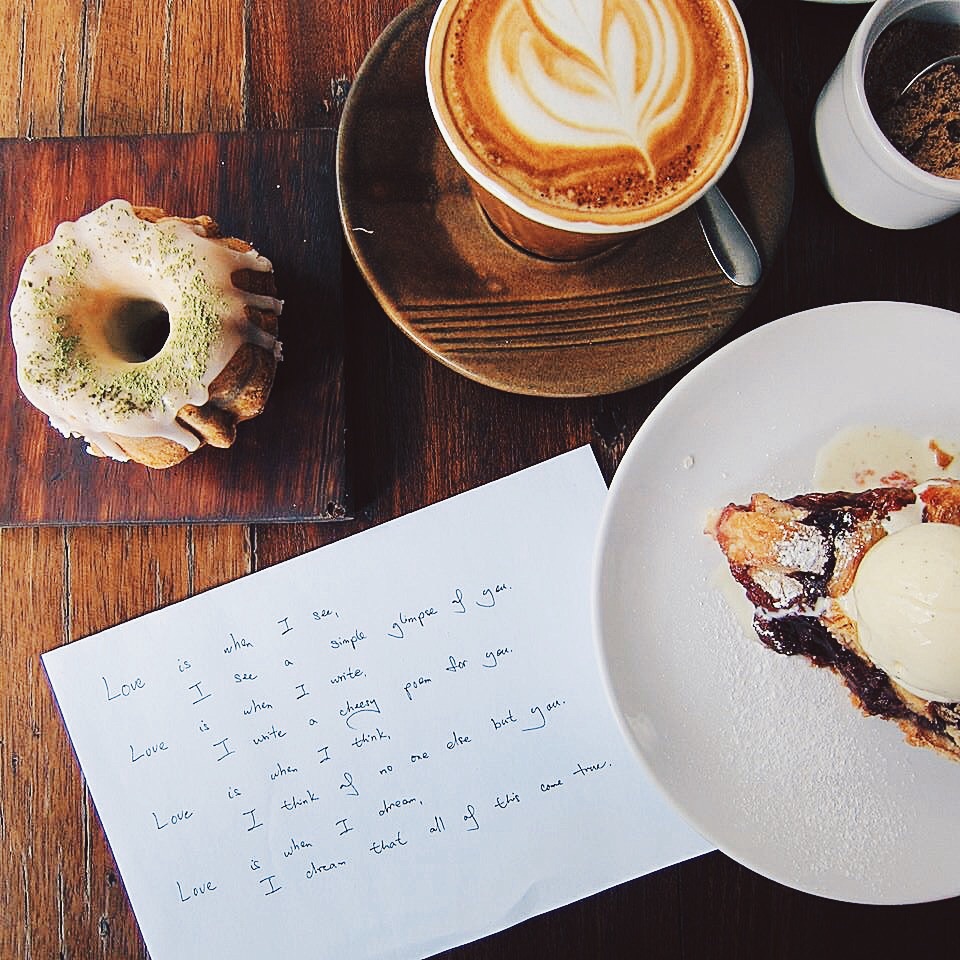 Love is when I see,
I see a simple glimpse of you.
Love is when I write,
I write a cheesy poem for you.
Love is when I think,
I think of no one else but you.
Love is when I dream,
I dream that all of this come true.